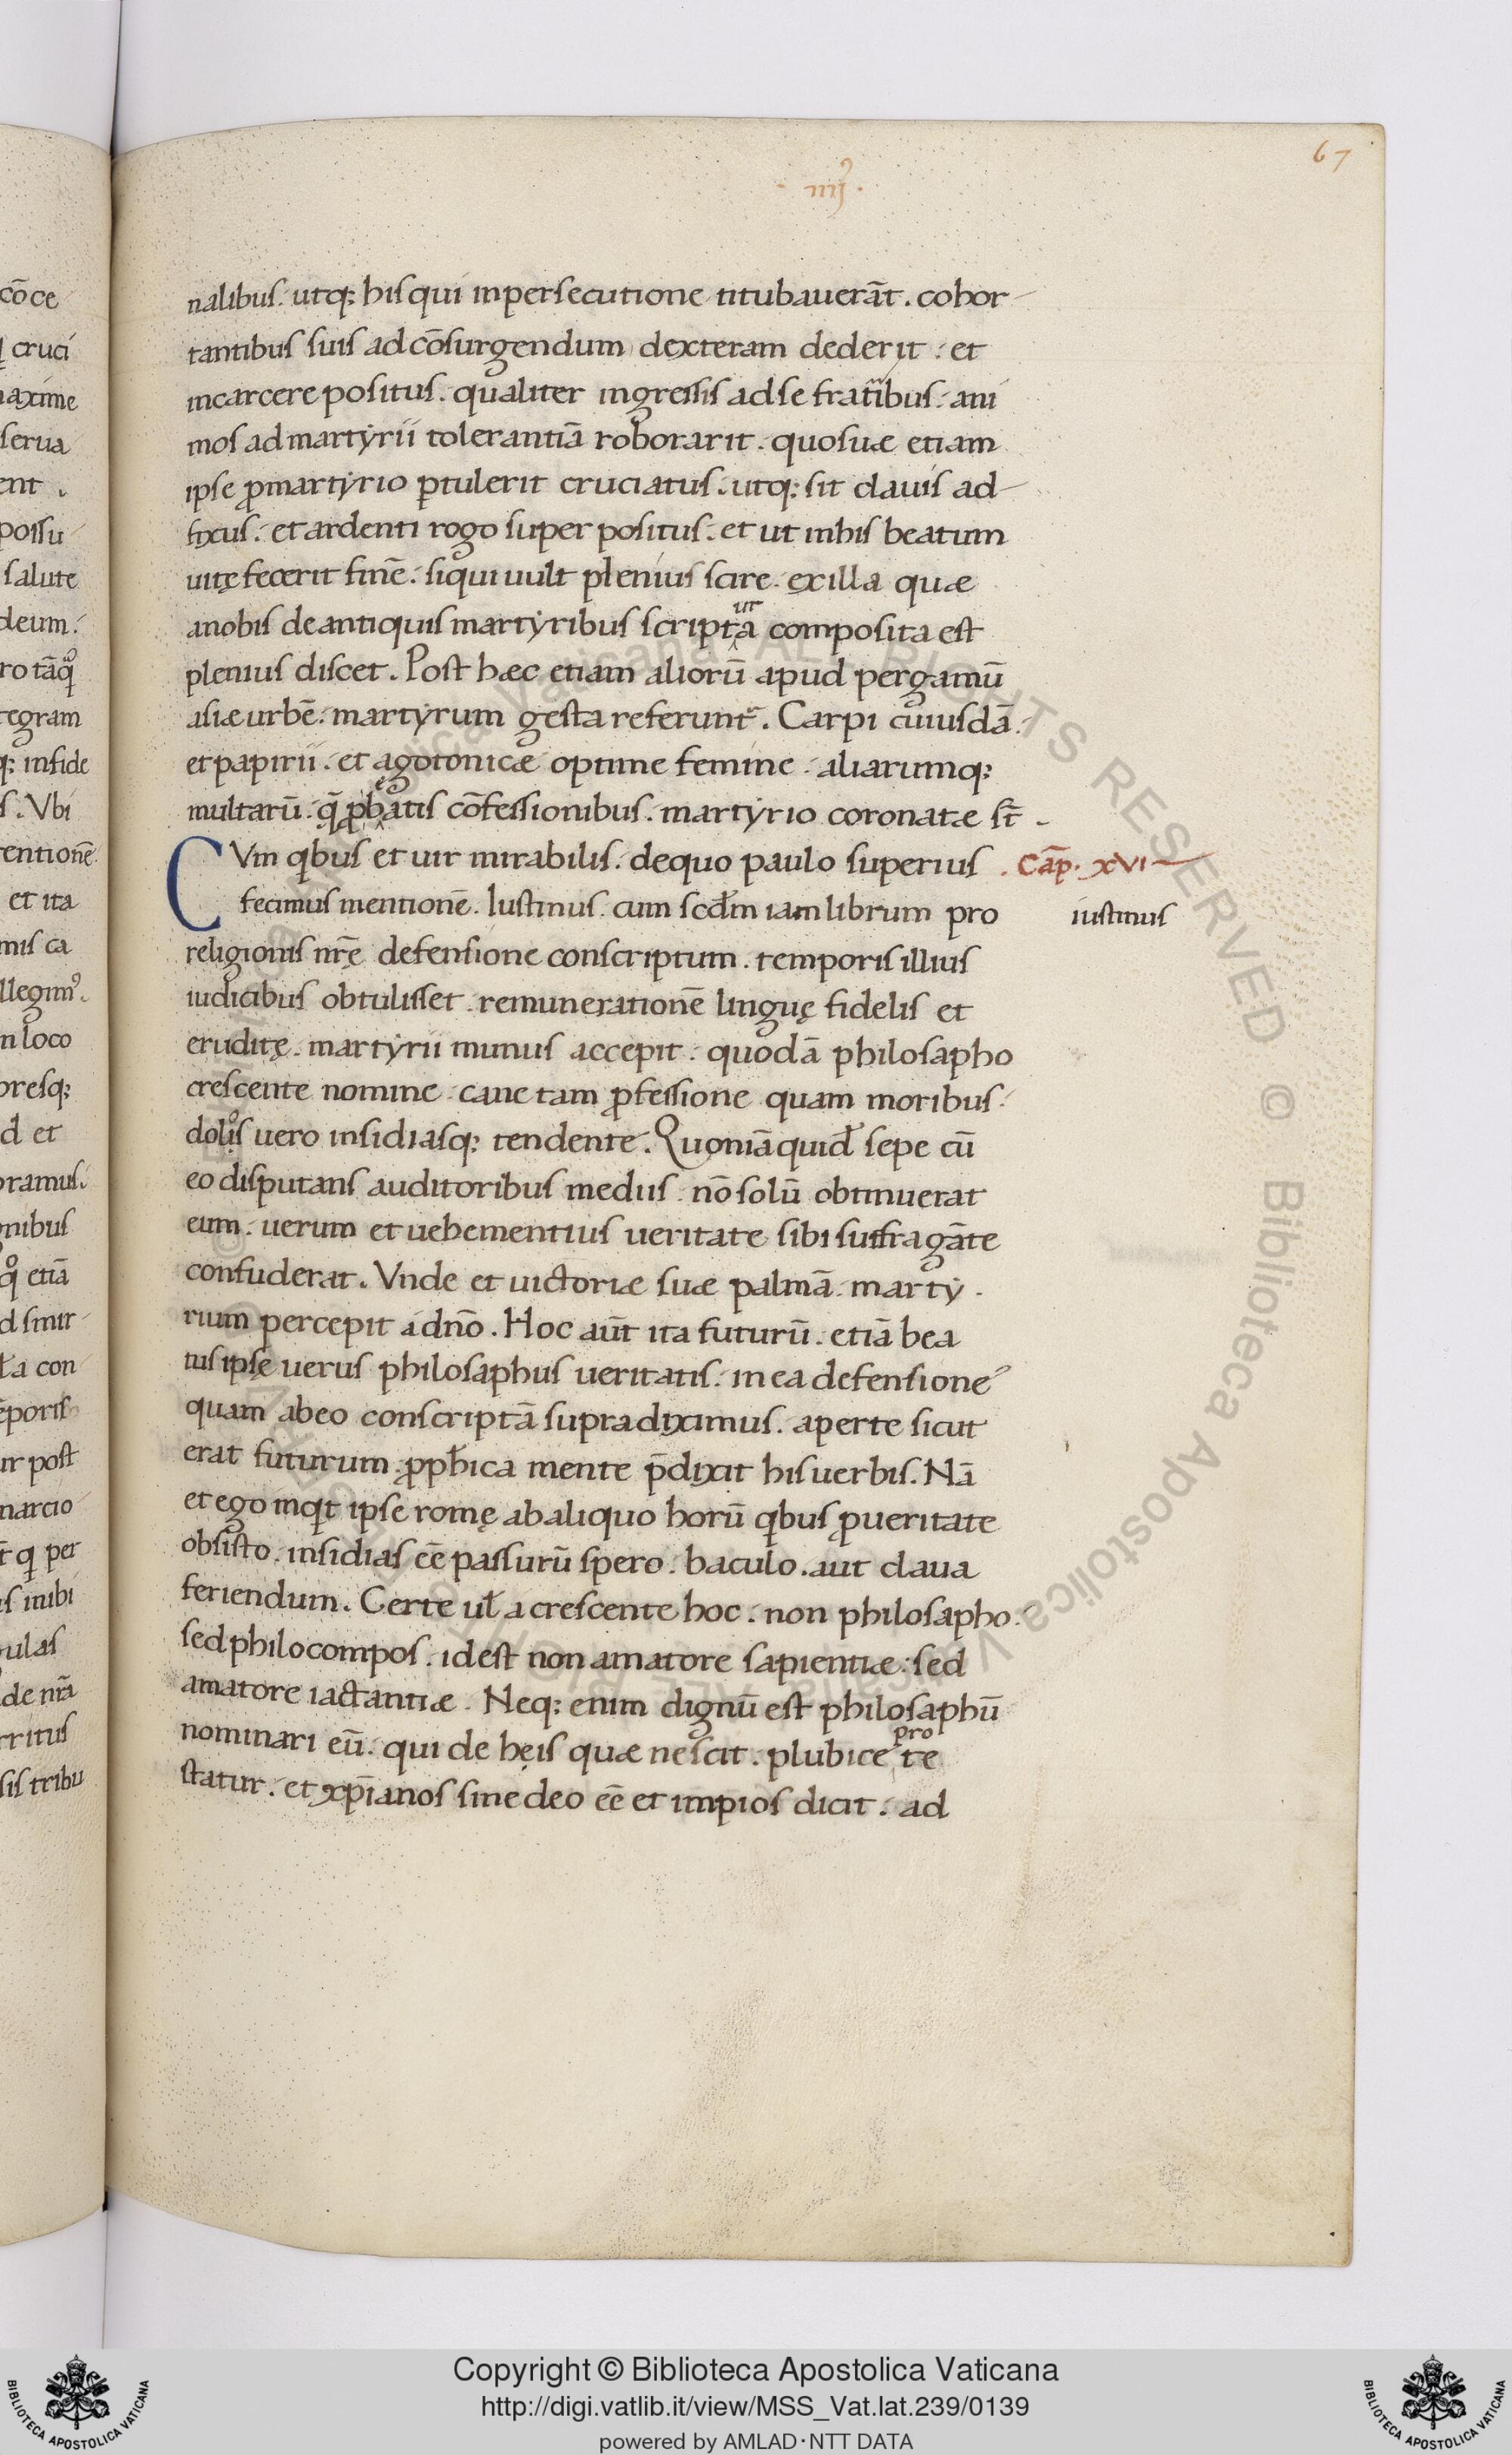 67
· iiijꝰ ·
nalibus. utq; his qui inpersecutione titubauerāt. cohor
tantibus suis ad cōsurgendum dexteram dederit. et
incarcere positus. qualiter ingressis ad se frat̄ibus. ani
mos ad martyrii tolerantiā roborarit. quosuæ etiam
ipse ꝓmartyrio ꝑtulerit cruciatus. utq; sit clauis ad
fixus. et ardenti rogo super positus. et ut inhis beatum
uitę fecerit finē. siqui uult plenius scire. exilla quæ
anobis deantiquis martyribus scriptura composita est
plenius discet. Post hæc etiam aliorū apud pergamū
asiæ urbē. martyrum gesta referunt᷑. Carpi cuiusdā.
et papirii. et agotonicæ optime femine. aliarumq;
multarū. q̄ ꝓbeatis cōfessionibus. martyrio coronatæ st̄.
CVm qbus et uir mirabilis. dequo paulo superius
. Cāp. XVI
fecimus mentionē. Iustinus. cum scd̄m iam librum pro
iustinus
religionis nr̄ę defensione conscriptum. temporis illius
iudicibus obtulisset. remunerationē linguę fidelis et
eruditę. martyrii munus accepit. quodā philosapho
crescente nomine. cane tam ꝓfessione quam moribus.
dolis uero insidiasq; tendente. Quoniā quid̄ sepe cū
eo disputans auditoribus mediis. nō solū obtinuerat
eum. uerum et uehementius ueritate sibi suffragāte
confuderat. Vnde et uictoriæ suæ palmā. marty.
rium percepit a dn̄o. Hoc aūt ita futurū. etiā bea
tus ipse uerus philosaphus ueritatis. in ea defensione
quam abeo conscriptā supradiximus. aperte sicut
erat futurum. ꝓpħica mente p̄dixit his uerbis. Nā
et ego inqt ipse romę ab aliquo horū qbus ꝓueritate
obsisto. insidias eē passurū spero. baculo. aut claua
feriendum. Certe ul̄ a crescente hoc. non philosapho.
sed philocompos. id est non amatore sapientiæ. sed
amatore iactantiæ. Neq; enim dignū est philosaphū
nominari eū. qui de heis quæ nescit. plubice prote
statur. et xp̄ianos sine deo eē et impios dicit. ad
cōce
cruci
axime
serua
ent.
possu
salute
deum.
ro tāqͦ
tegram
q; infide
s. Vbi
tentionē
et ita
mis ca
llegimꝰ.
n loco
oresq;
d et
oramus.
nibus
qͦ etiā
d smir
ta con
ēporis
ur post
marcio
per
s inibi
ulas
de nr̄a
rritus
sis tribu
© Biblioteca Apostolica Vaticana ALL RIGHTS RESERVED
Copyright © Biblioteca Apostolica Vaticana
http://digi.vatlib.it/view/MSS_Vat.lat.239/0139
powered by AMLAD·NTT DATA
BIBLIOTECA APOSTOLICA VATICANA
BIBLIOTECA APOSTOLICA VATICANA